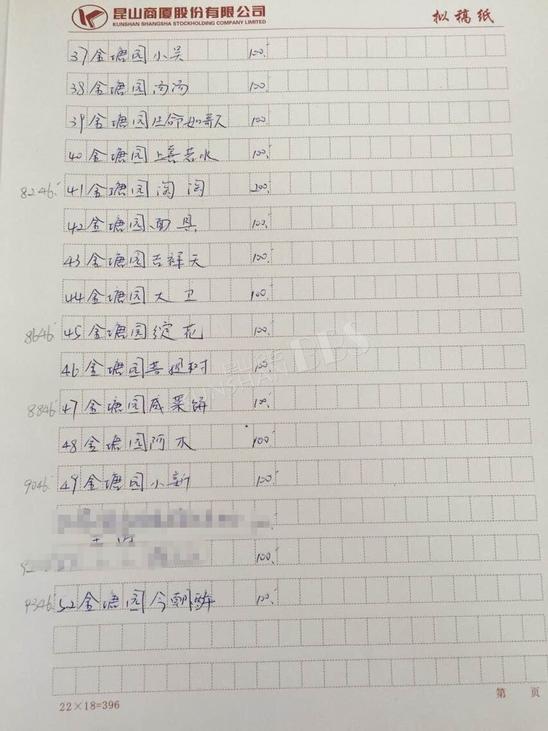 昆山商厦股份有限公司
KUNSHAN SHANGSHA STOCKHOLDING COMPANY LIMITED
拟稿纸
37 金塘园 小吴 100.
38 金塘园 汤汤 100.
39 金塘园 生命如歌 100
40 金塘园 上善若水 100.
8246. 41 金塘园 淘淘 200.
42 金塘园 面具 100.
43 金塘园 吉祥天 100.
44 金塘园 大卫 100.
8646. 45 金塘园 绽花 100.
46 金塘园 菩提树 100.
8846. 47 金塘园 咸菜饼 100.
48 金塘园 阿木 100.
9046. 49 金塘园 小新 100.
100.
100.
9346. 52 金塘园 今朝醉 100.
22×18=396
第 页